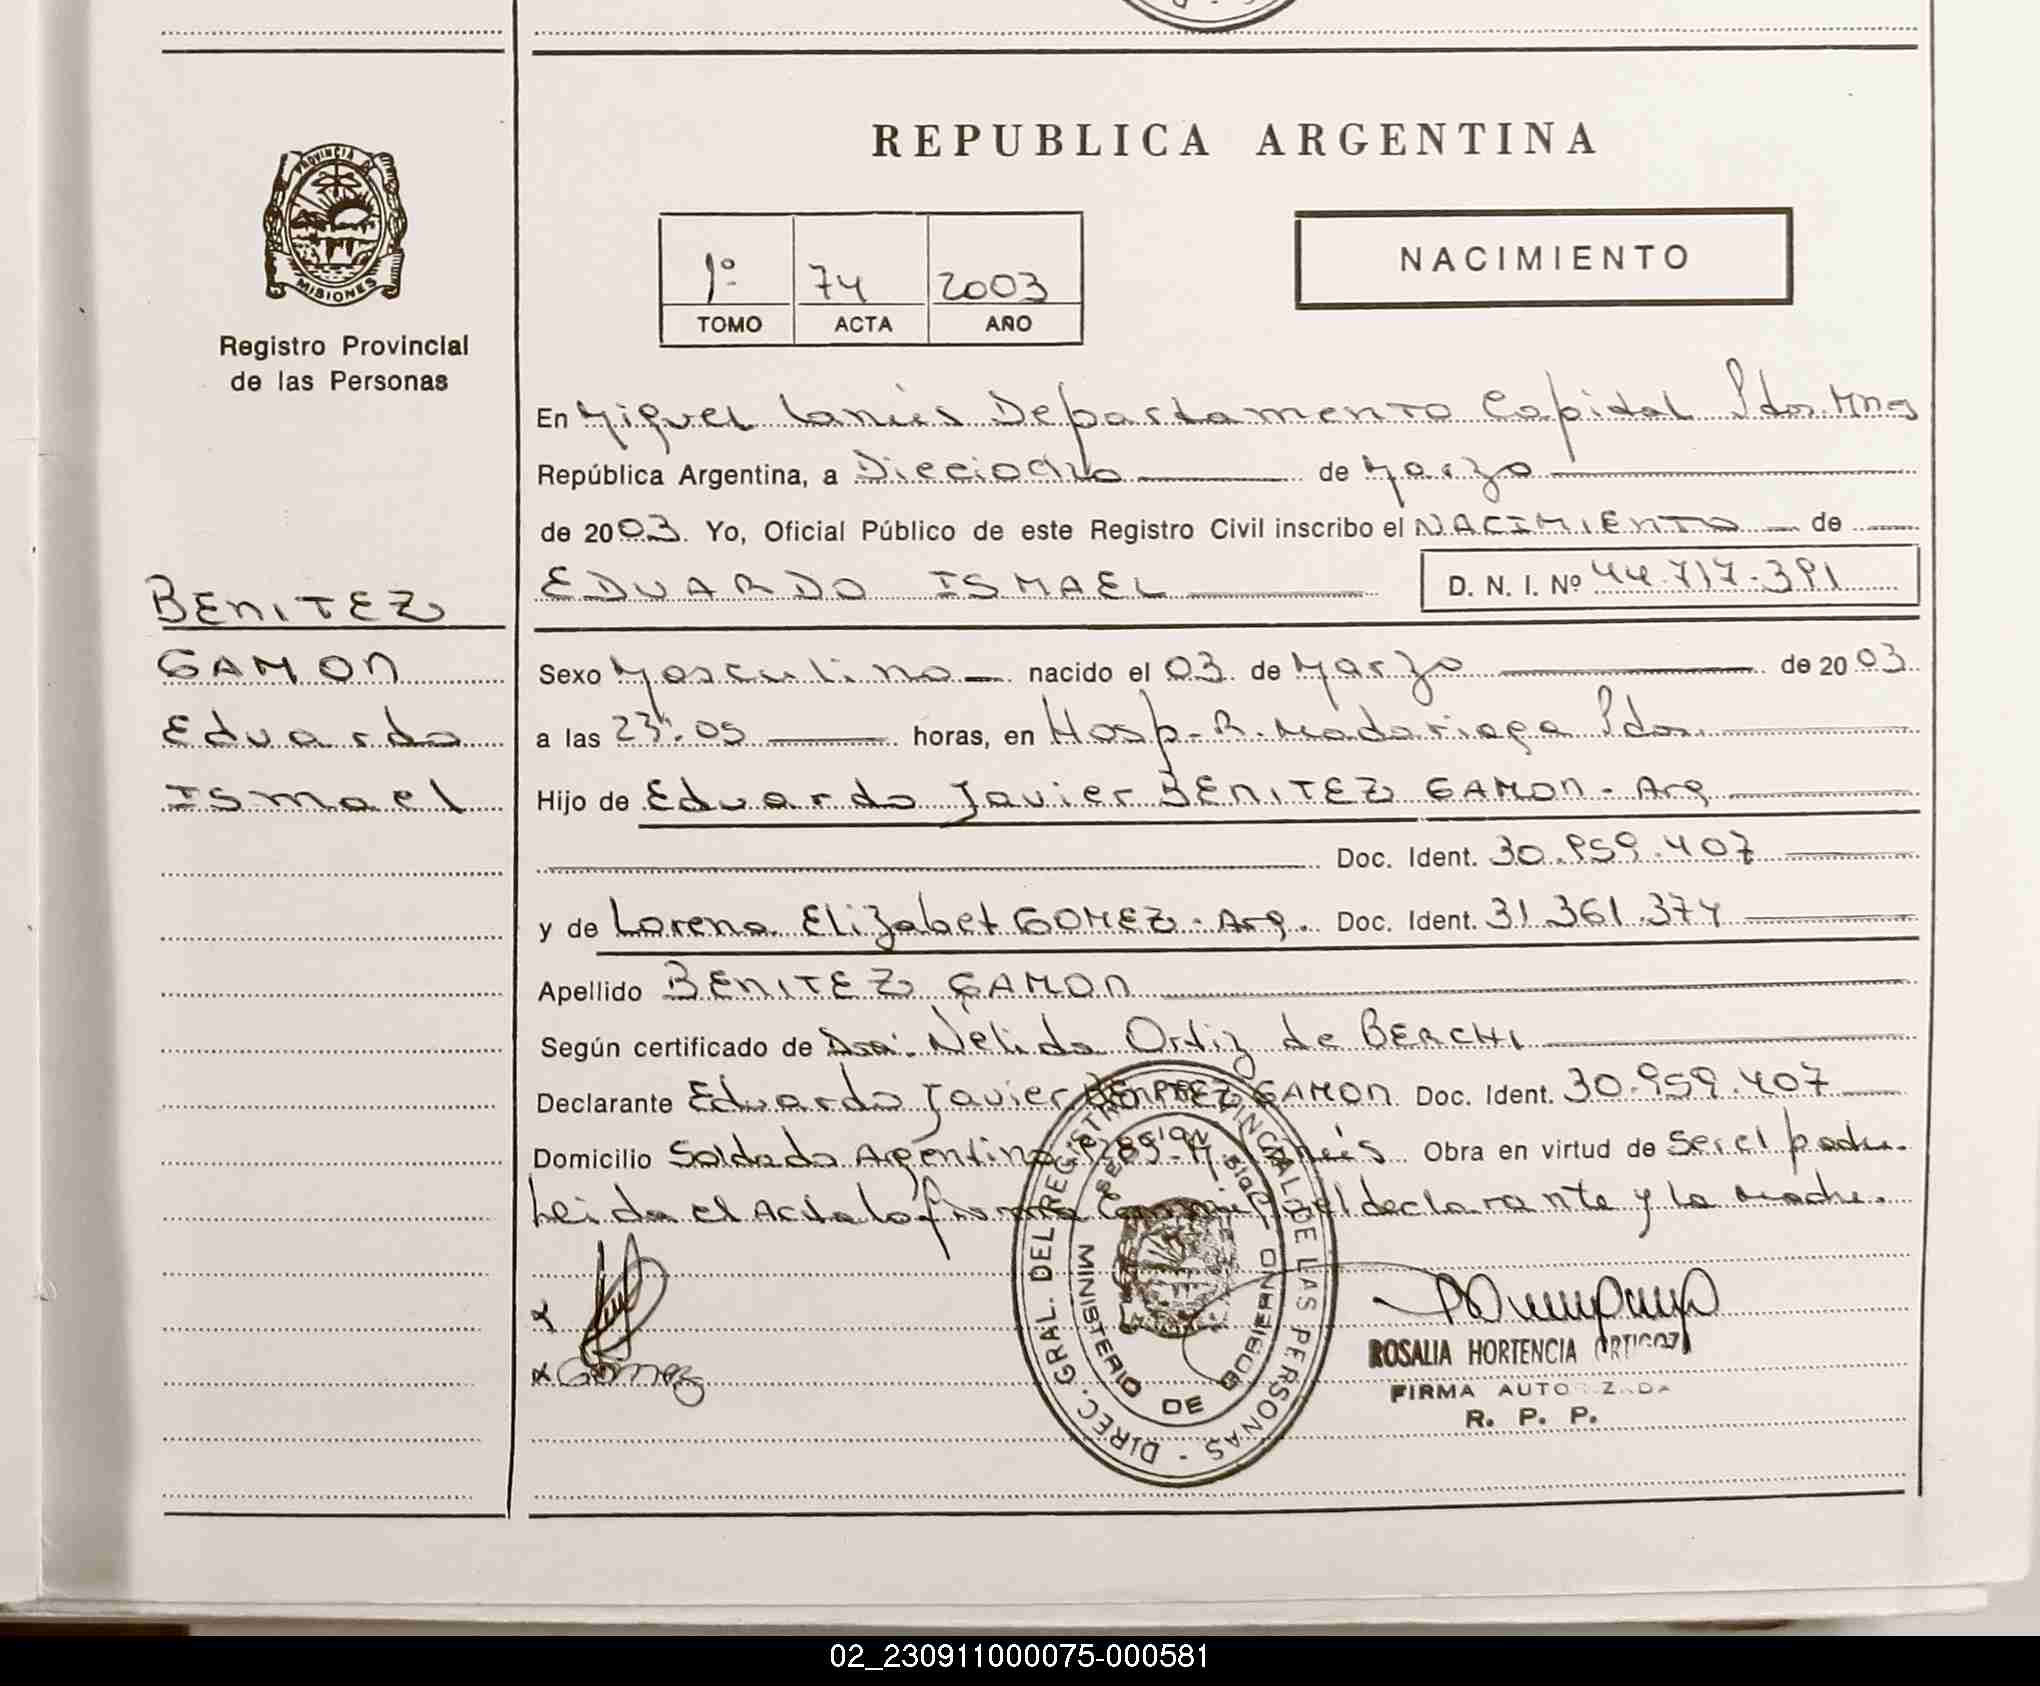 REPUBLICA ARGENTINA
PROVINCIA DE
MISIONES
Registro Provincial
de las Personas
1º 74 2003
TOMO ACTA AÑO
NACIMIENTO
En Miguel Lanús Departamento Capital Pdas. Mnes
República Argentina, a Dieciocho de Marzo
de 2003. Yo, Oficial Público de este Registro Civil inscribo el NACIMIENTO de
EDUARDO ISMAEL D. N. I. Nº 44.717.391
BENITEZ
GAMON
Eduardo
Ismael
Sexo Masculino nacido el 03 de Marzo de 2003
a las 23h.05 horas, en Hosp. R. Madariaga Pdas.
Hijo de Eduardo Javier BENITEZ GAMON - Arg
Doc. Ident. 30.959.407
y de Lorena Elizabet GOMEZ - Arg. Doc. Ident. 31.361.374
Apellido BENITEZ GAMON
Según certificado de Dra. Nélida Ortiz de BERCHI
Declarante Eduardo Javier BENITEZ GAMON Doc. Ident. 30.959.407
Domicilio Soldado Argentino M. Lanús Obra en virtud de ser el padre.
Leida el Acta la firma el declarante y la madre.
Gomez
DIREC. GRAL. DEL REGISTRO PROVINCIAL DE LAS PERSONAS
MINISTERIO DE GOBIERNO
ROSALIA HORTENCIA ORTIGOZA
FIRMA AUTORIZADA
R. P. P.
02_230911000075-000581